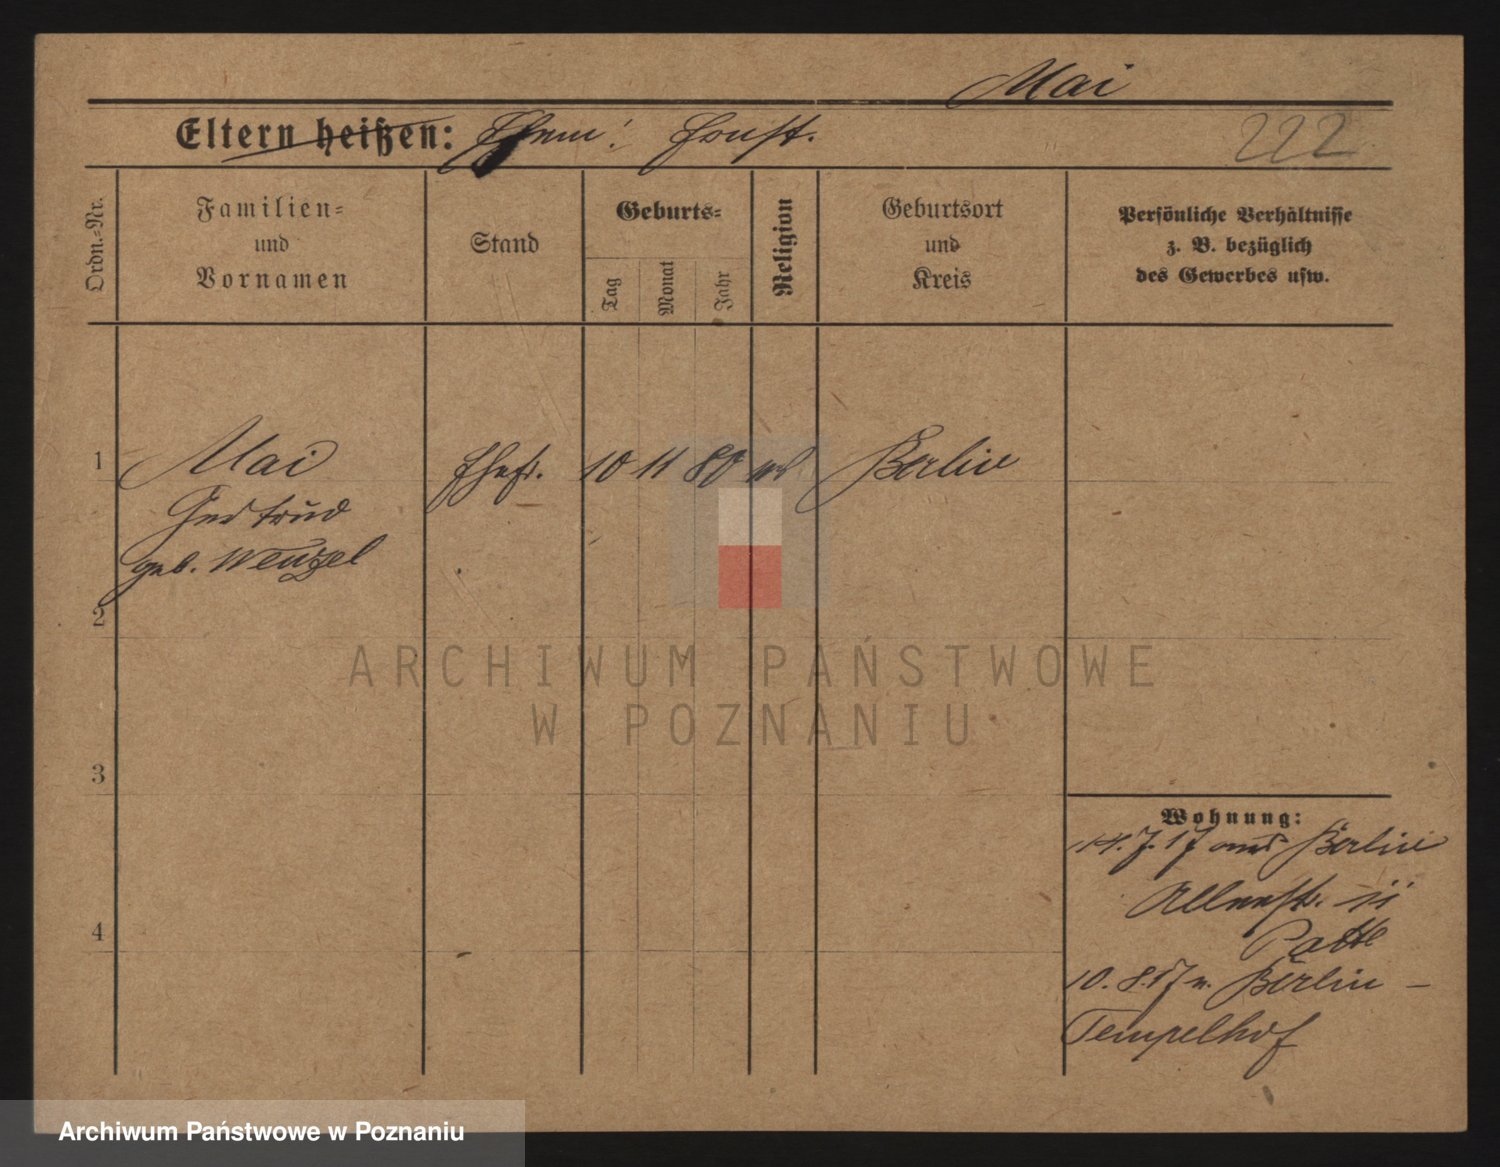 Mai
Eltern heißen: Ehem: Ernst.
222
Ordn.-Nr.
Familien-
und
Vornamen
Stand
Geburts-
Tag
Monat
Jahr
Religion
Geburtsort
und
Kreis
Persönliche Verhältnisse
z. B. bezüglich
des Gewerbes usw.
1
Mai
Ehefr. 10 11 80 Berlin
Gertrud
geb. Wenzel
2
ARCHIWUM PAŃSTWOWE
W POZNANIU
3
Wohnung:
14. 7. 17 aus Berlin
4
10. 8. 17 n. Berlin -
Tempelhof
Archiwum Państwowe w Poznaniu